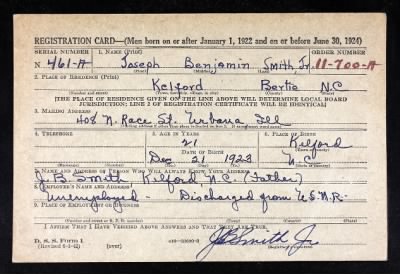 REGISTRATION CARD—(Men born on or after January 1, 1922 and on or before June 30, 1924)
SERIAL NUMBER 1. NAME (Print) ORDER NUMBER
N 461-A Joseph Benjamin Smith, Jr. 11-700-A
(First) (Middle) (Last)
2. PLACE OF RESIDENCE (Print)
Kelford Bertie N.C
[THE PLACE OF RESIDENCE GIVEN ON THE LINE ABOVE WILL DETERMINE LOCAL BOARD JURISDICTION; LINE 2 OF REGISTRATION CERTIFICATE WILL BE IDENTICAL]
3. MAILING ADDRESS
408 N. Race St. Urbana Ill
4. TELEPHONE 5. AGE IN YEARS 6. PLACE OF BIRTH
21 Kelford
DATE OF BIRTH
Dec 21 1923 N.C.
7. NAME AND ADDRESS OF PERSON WHO WILL ALWAYS KNOW YOUR ADDRESS
J.B. Smith Kelford, N.C. (Father)
8. EMPLOYER'S NAME AND ADDRESS
Unemployed - Discharged from U.S.N.R.
9. PLACE OF EMPLOYMENT OR BUSINESS
I AFFIRM THAT I HAVE VERIFIED ABOVE ANSWERS AND THAT THEY ARE TRUE.
D. S. S. Form 1 (over) JB Smith Jr